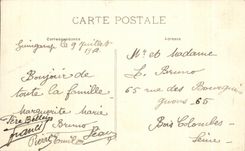 CARTE POSTALE
Correspondance
Adresse
Guingamp le 9 Juillet
Bonjour de
toute la famille
Marguerite Marie
Bruno
Jean
Pierre
Mr et Madame
L. Bruno
65 rue des Bourgui
gnons 65
Bois Colombes
Seine